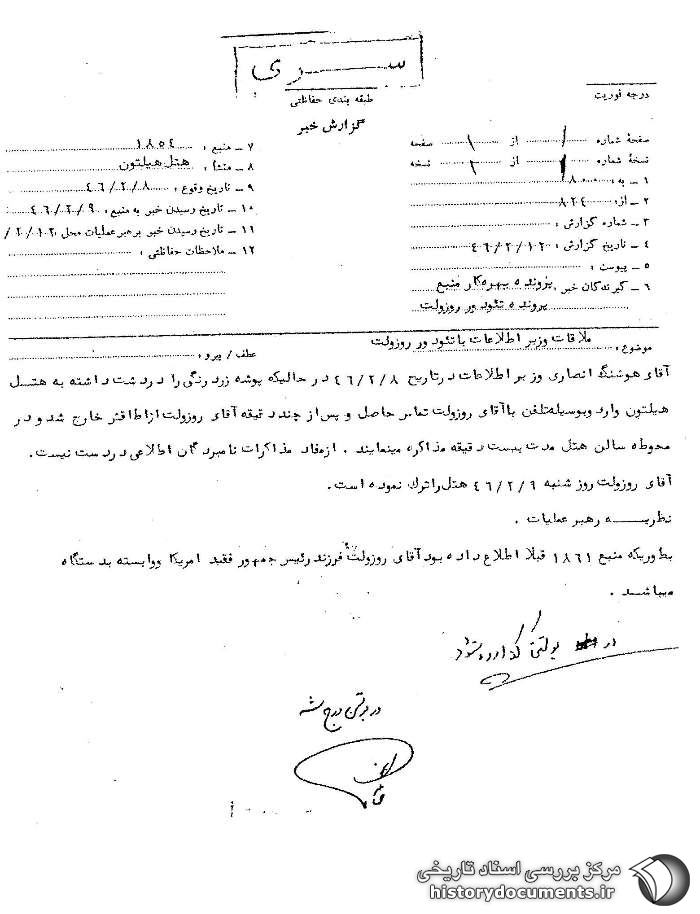 سری
طبقه بندی حفاظتی
درجه فوریت
گزارش خبر
صفحهٔ شماره ۱ از ۱ صفحه
نسخهٔ شماره ۱ از ۲ نسخه
۱ - به : ۸۰۰
۲ - از: ۸۲٤
۳ - شماره گزارش :
٤ - تاریخ گزارش : ٤٦/۲/۱۲
۵ - پیوست :
۶ - گیرندگان خبر : پرونده بهره‌کار منبع
پرونده تئودور روزولت
۷ - منبع : ۱۸۵٤
۸ - منشاء : هتل هیلتون
۹ - تاریخ وقوع : ٤٦/۲/۸
۱۰ - تاریخ رسیدن خبر به منبع : ٤٦/۲/۹
۱۱ - تاریخ رسیدن خبر برهبر عملیات محل /۲/۱۲
۱۲ - ملاحظات حفاظتی :
موضوع : ملاقات وزیر اطلاعات با تئودور روزولت
عطف / پیرو :
آقای هوشنگ انصاری وزیر اطلاعات در تاریخ ٤٦/۲/۸ در حالیکه پوشه زرد رنگی را در دشت داشته به هتل
هیلتون وارد وبوسیله تلفن با آقای روزولت تماس حاصل و پس از چند دقیقه آقای روزولت از اطاقش خارج شد و در
محوطه سالن هتل مدت بیست دقیقه مذاکره مینمایند . از مفاد مذاکرات نامبردگان اطلاعی در دست نیست .
آقای روزولت روز شنبه ٤٦/۲/۹ هتل را ترك نموده است .
نظریه رهبر عملیات .
بطوریکه منبع ۱۸۶۱ قبلا اطلاع داده بود آقای روزولت فرزند رئیس جمهور فقید امریکا ووابسته بدستگاه
میباشد .
در بولتن گذارده شود
در بولتن درج شد
مرکز بررسی اسناد تاریخی
historydocuments.ir